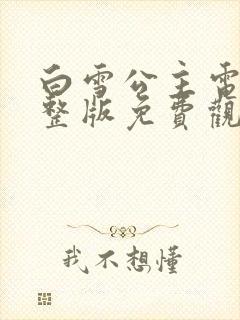 白雪公主電
整版免費觀
我不想懂